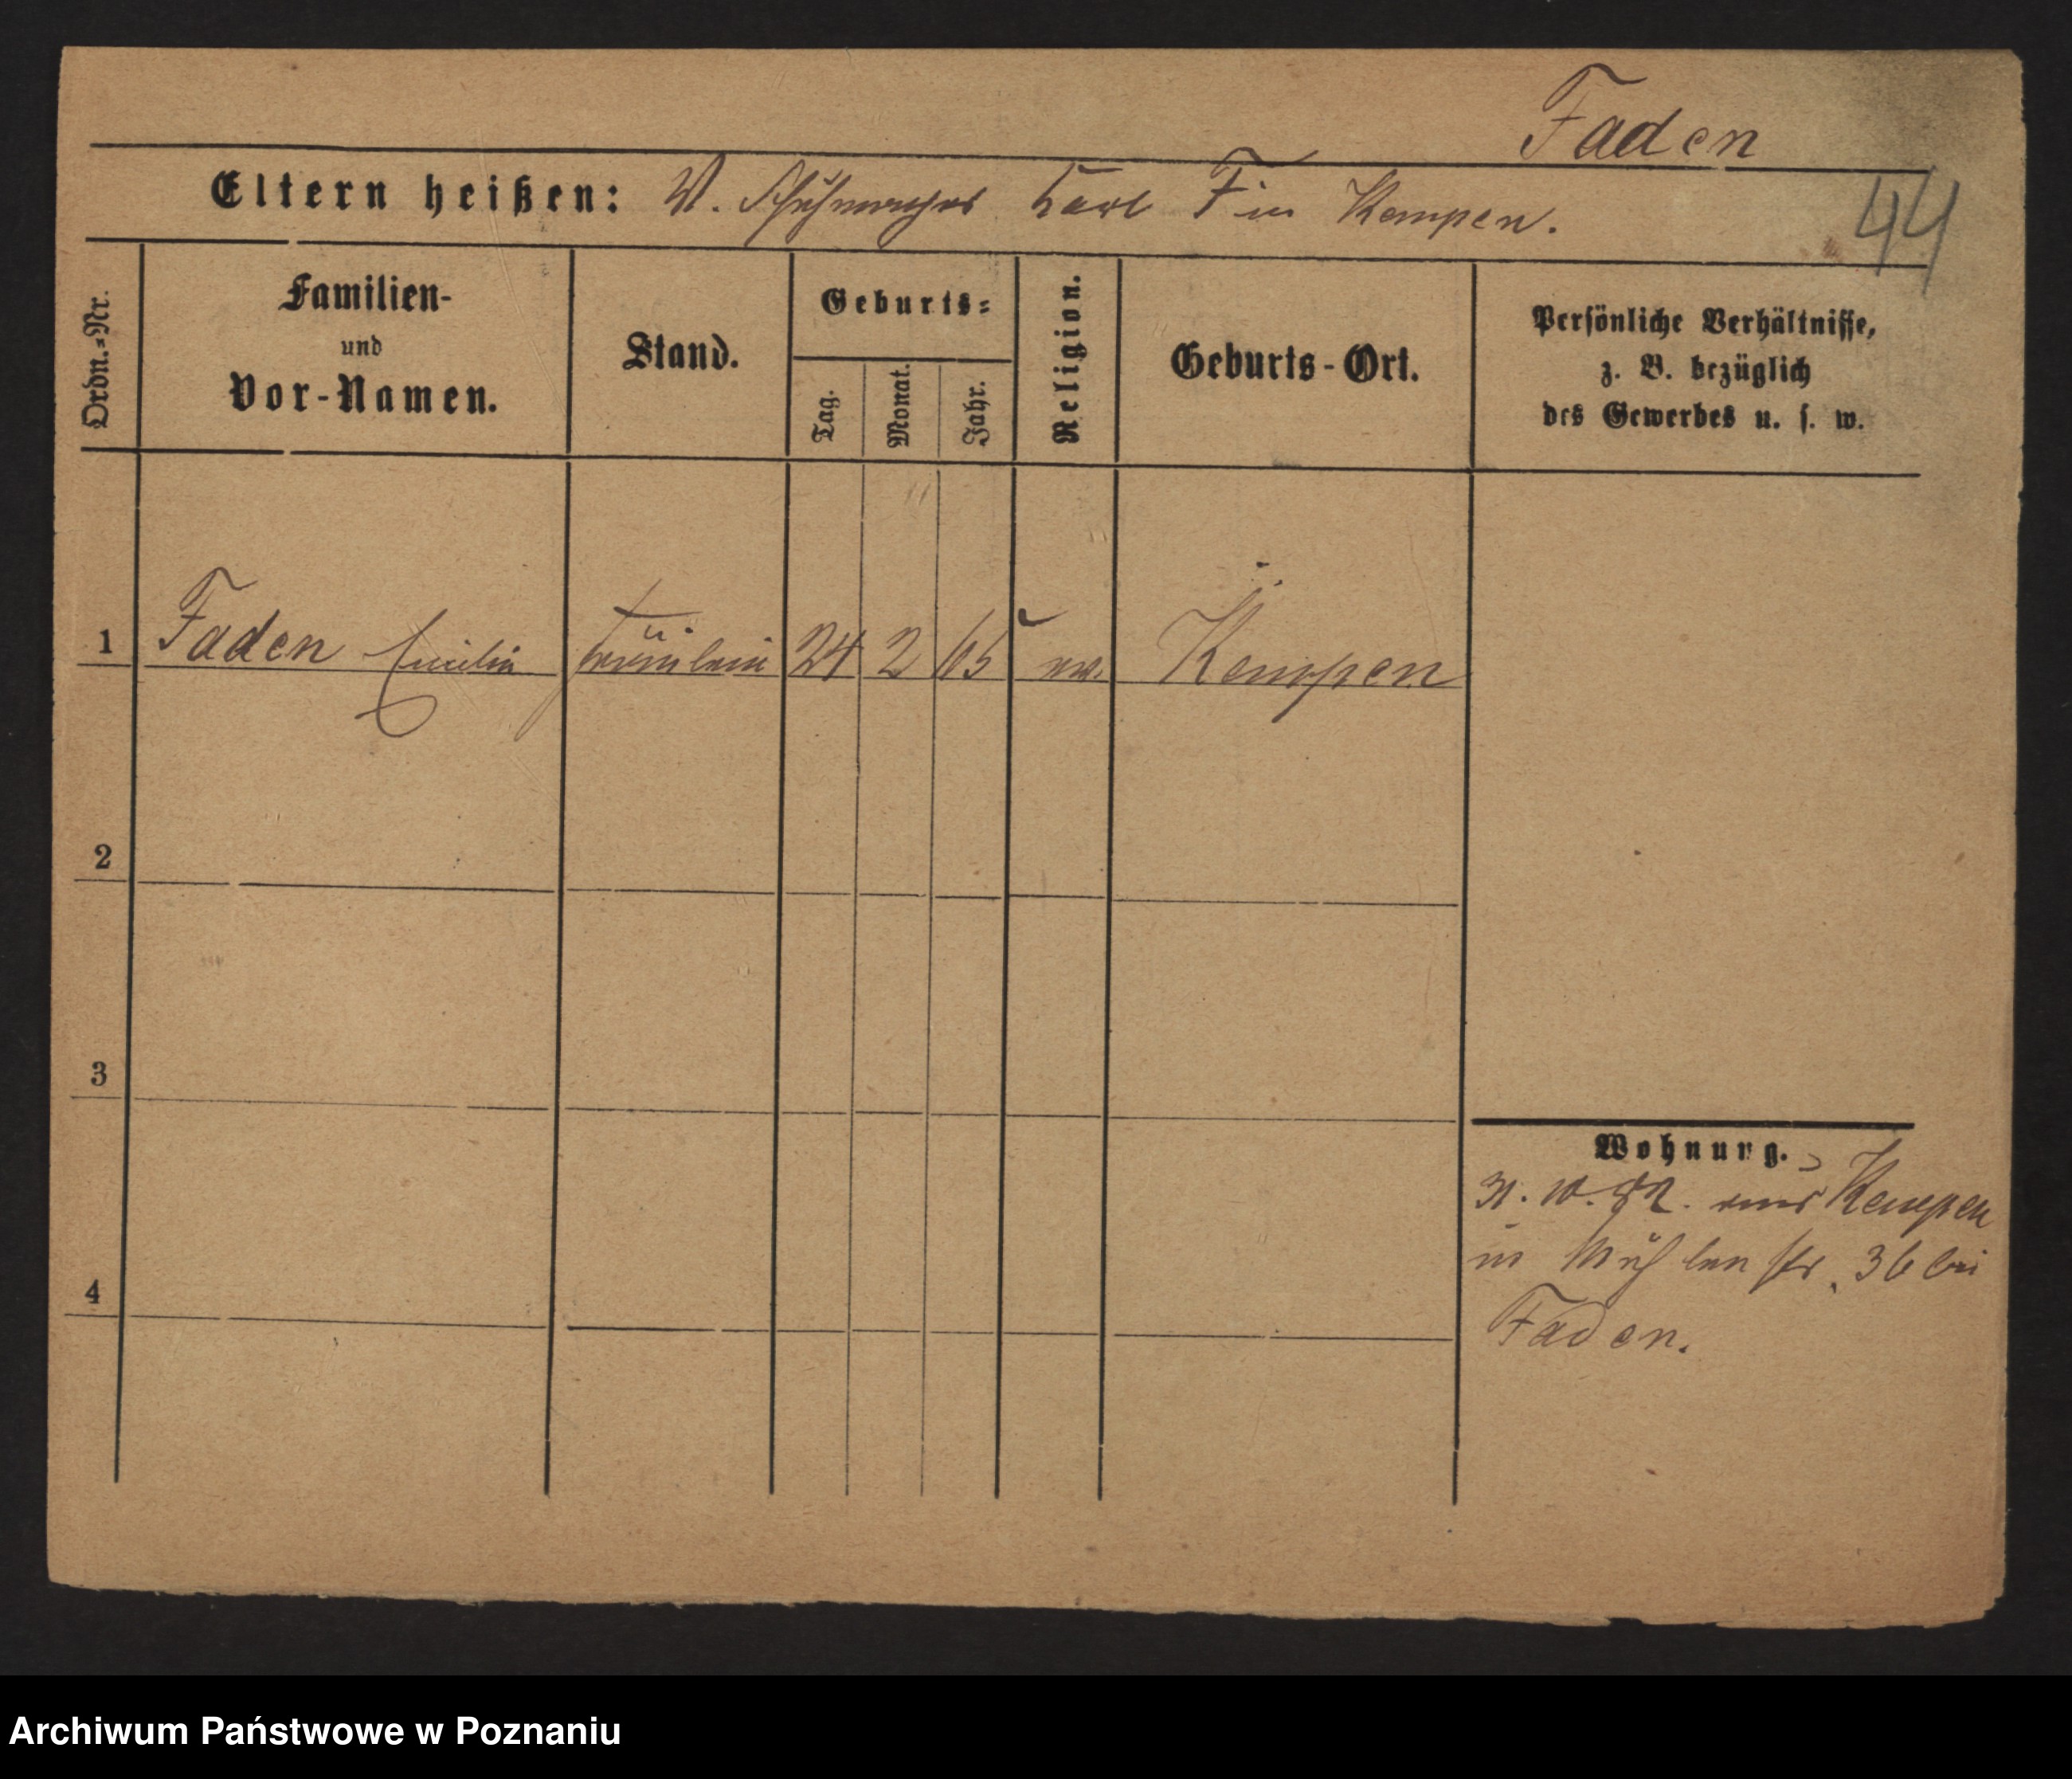 Faden
Eltern heißen: V. Schuhmacher Karl F in Kempen.
44
Ordn.=Nr.
Familien-
und
Vor-Namen.
Stand.
Geburts=
Tag.
Monat.
Jahr.
Religion.
Geburts-Ort.
Persönliche Verhältnisse,
z. B. bezüglich
des Gewerbes u. s. w.
1 Faden Emilie Fräulein 24 2 65 ev. Kempen
2
3
4
Wohnung.
31. 10. 82. aus Kempen
in Mühlenstr. 36 bei
Faden.
Archiwum Państwowe w Poznaniu